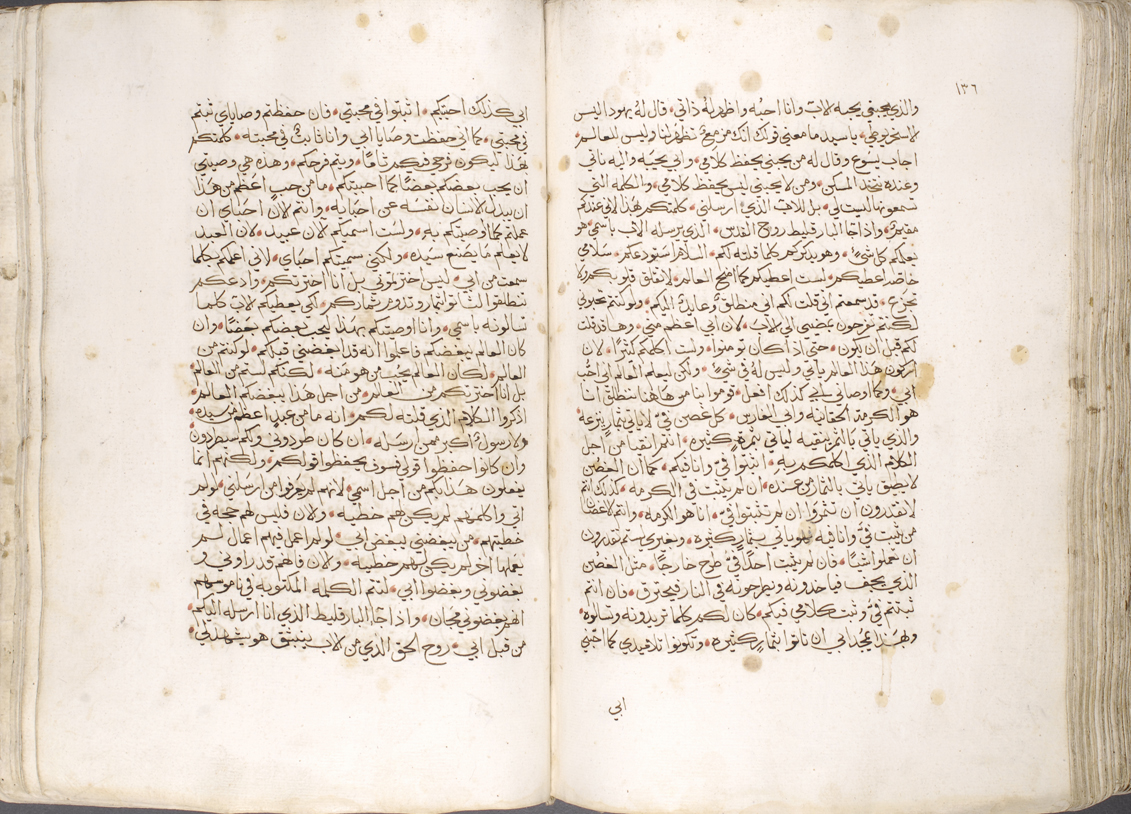 ١٣٦
والذي يحبني يحبه لاب وانا احبه واظهر له ذاتي قال له يهودا ليس
لاسخريوطي يا سيد ما معني قولك انك مزمع تظهر لنا وليس للعالم
اجاب يسوع وقال له من يحبني يحفظ كلامي وابي يحبه واليه ناتي
وعنده نتخد المسكن ومن لا يحبني ليس يحفظ كلامي والكلمه التي
تسمعونها ليست لي بل للاب الذي ارسلني كلمتكم بهذا لاني عندكم
مقيم واذا جا البارقليط روح القدس الذي يرسله الاب باسمي هو
يعلمكم كل شي وهو يذكركم كلما قلته لكم السلام استودعكم سلامي
خاصه اعطيكم لست اعطيكم كما يمنح العالم لا تقلق قلوبكم ولا
تجزع قد سمعتم اني قلت لكم اني منطلق وعايد اليكم ولو كنتم تحبوني
لكنتم تفرحون بمضيي الي لاب لان ابي اعظم مني وها قد قلت
لكم قبل ان يكون حتي اذا كان تومنوا ولست اكلمكم كثيرا لان
اركون هذا العالم ياتي وليس له في شي ولكن ليعلم العالم اني احب
ابي وكما اوصاني ابي كذلك افعل قوموا بنا من هاهنا ننطلق انا
هو الكرمه الحقانيه وابي الغارس كل غصن في لا ياتي بثمار ينزعه
والذي ياتي بالثمر ينقيه لياتي بثمر كثيره انتم انقيا من اجل
الكلام الذي اكلمكم به اثبتوا في وانا فيكم كما ان الغصن
لا يطيق ياتي بالثمار من عنده ان لم يثبت في الكرمه كذلك انتم
لا تقدرون ان تثمروا ان لم تثبتوا في انا هو الكرمه وانتم لاغصان
من ثبت في وانا فيه فهو ياتي بثمار كثيره وبغيري لستم تقدرون
ان تعملوا شيا فان لم يثبت احدا في طرح خارجا مثل الغصن
الذي يجف فياخدونه ويطرحونه في النار فيحترق فان انتم
ثبتم في وثبت كلامي فيكم كان لكم كلما تريدونه وتسالوه
وبهذا يمجد ابي ان تاتوا بثمار كثيره وتكونوا تلاميدي كما احبني
ابي
ابي كذلك احببتكم اثبتوا في محبتي فان حفظتم وصاياي ثبتم
في محبتي كما اني حفظت وصايا ابي وانا ثابت في محبته كلمتكم
بهذا ليكون فرحي فيكم تاما ويتم فرحكم وهذه هي وصيتي
ان يحب بعضكم بعضا كما احببتكم ما من حب اعظم من هذا
ان يبدل لانسان نفسه عن احبايه وانتم لان احباي ان
عملتم كما اوصيتكم به ولست اسميكم لان عبيد لان العبد
لا يعلم ما يصنع سيده ولكني سميتكم احباي لاني اعلمكم كلما
سمعت من ابي ليس اخترتموني بل انا اخترتكم وادعكم
تنطلقوا لتاتوا بثمار وتدوم ثماركم لكي يعطيكم لاب كلما
تسالونه باسمي وانا اوصيتكم بهذا ليحب بعضكم بعضا وان
كان العالم يبغضكم فاعلموا انه قد ابغضني قبلكم لو كنتم من
العالم لكان العالم يحب من هو منه لكنكم لستم من العالم
بل انا اخترتكم من العالم من اجل هذا يبغضكم العالم
اذكروا الكلام الذي قلته لكم انه ما من عبد اعظم من سيده
ولا رسول اكبر ممن ارسله ان كان طردوني ولكم سيطردون
وان كانوا حفظوا قولي فسوف يحفظوا قولكم ولكنهم انما
يفعلون هذا بكم من اجل اسمي لانهم لم يعرفوا من ارسلني لو لم
اتي واكلمهم لم يكن لهم خطيه ولان فليس لهم حجه في
خطيتهم من يبغضني يبغض ابي لو لم اعمل فيهم اعمال لم
يعملها احد لم يكن لهم خطيه ولان فاهم قد راوني و
بغضوني وبغضوا ابي لتتم الكلمه المكتوبه في ناموسهم
انهم بغضوني مجان واذا جا البارقليط الذي انا ارسله اليكم
من قبل ابي روح الحق الذي من لاب ينبثق هو يشهد لي